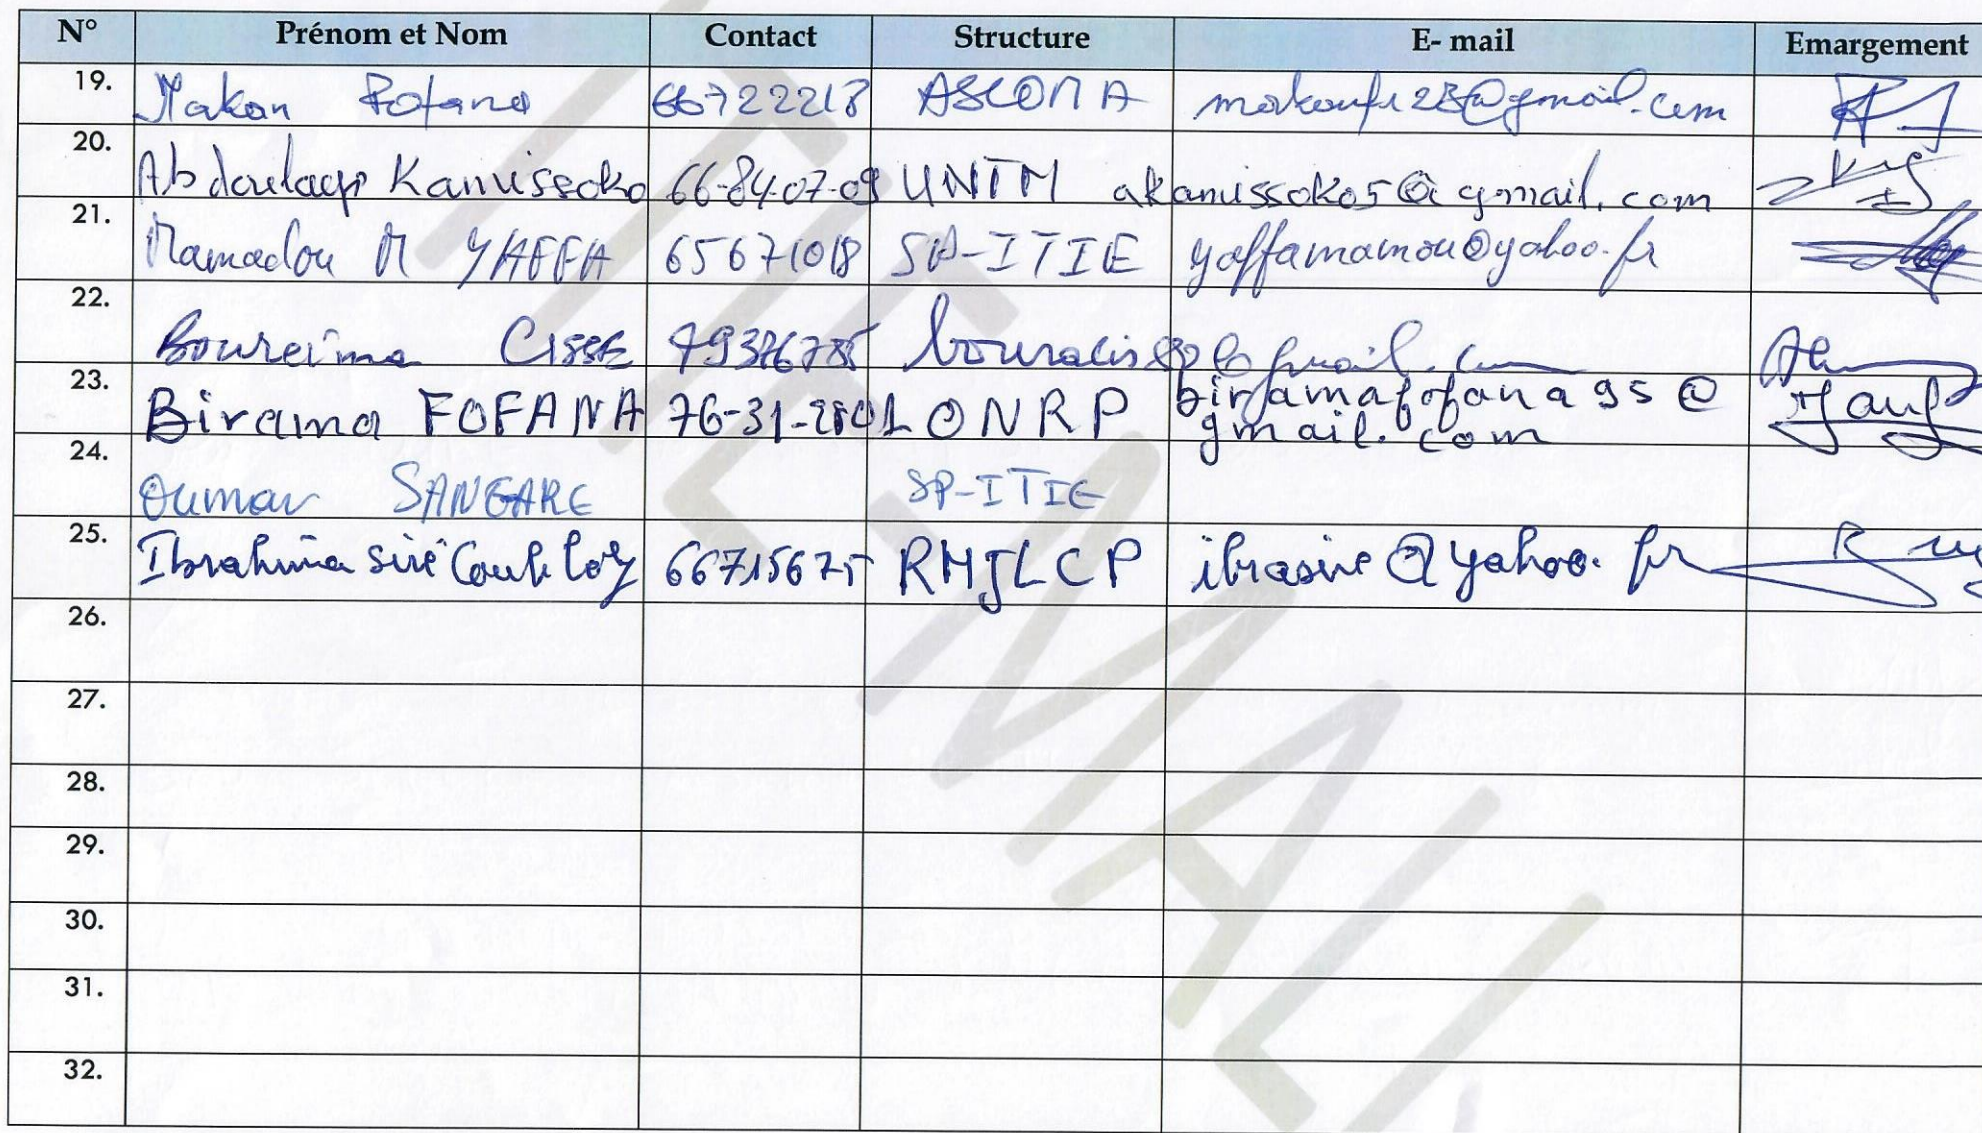 N° Prénom et Nom Contact Structure E- mail Emargement
19. Makan Fofana 66722218 ASCOMA @gmail.com
20. Abdoulaye Kamissoko 66-84-07-09 UNTM akamissoko5@gmail.com
21. Mamadou M YAFFA 65671018 SP-ITIE yaffamamou@yahoo.fr
22. Boureima CISSE
23. Birama FOFANA 76-31- ONRP biramafofana95@
gmail.com
24. Oumar SANGARE SP-ITIE
25. Ibrahima Siré Coulibaly 66715675 RMJLCP ibrasire@yahoo.fr
26.
27.
28.
29.
30.
31.
32.
ITIE MALI